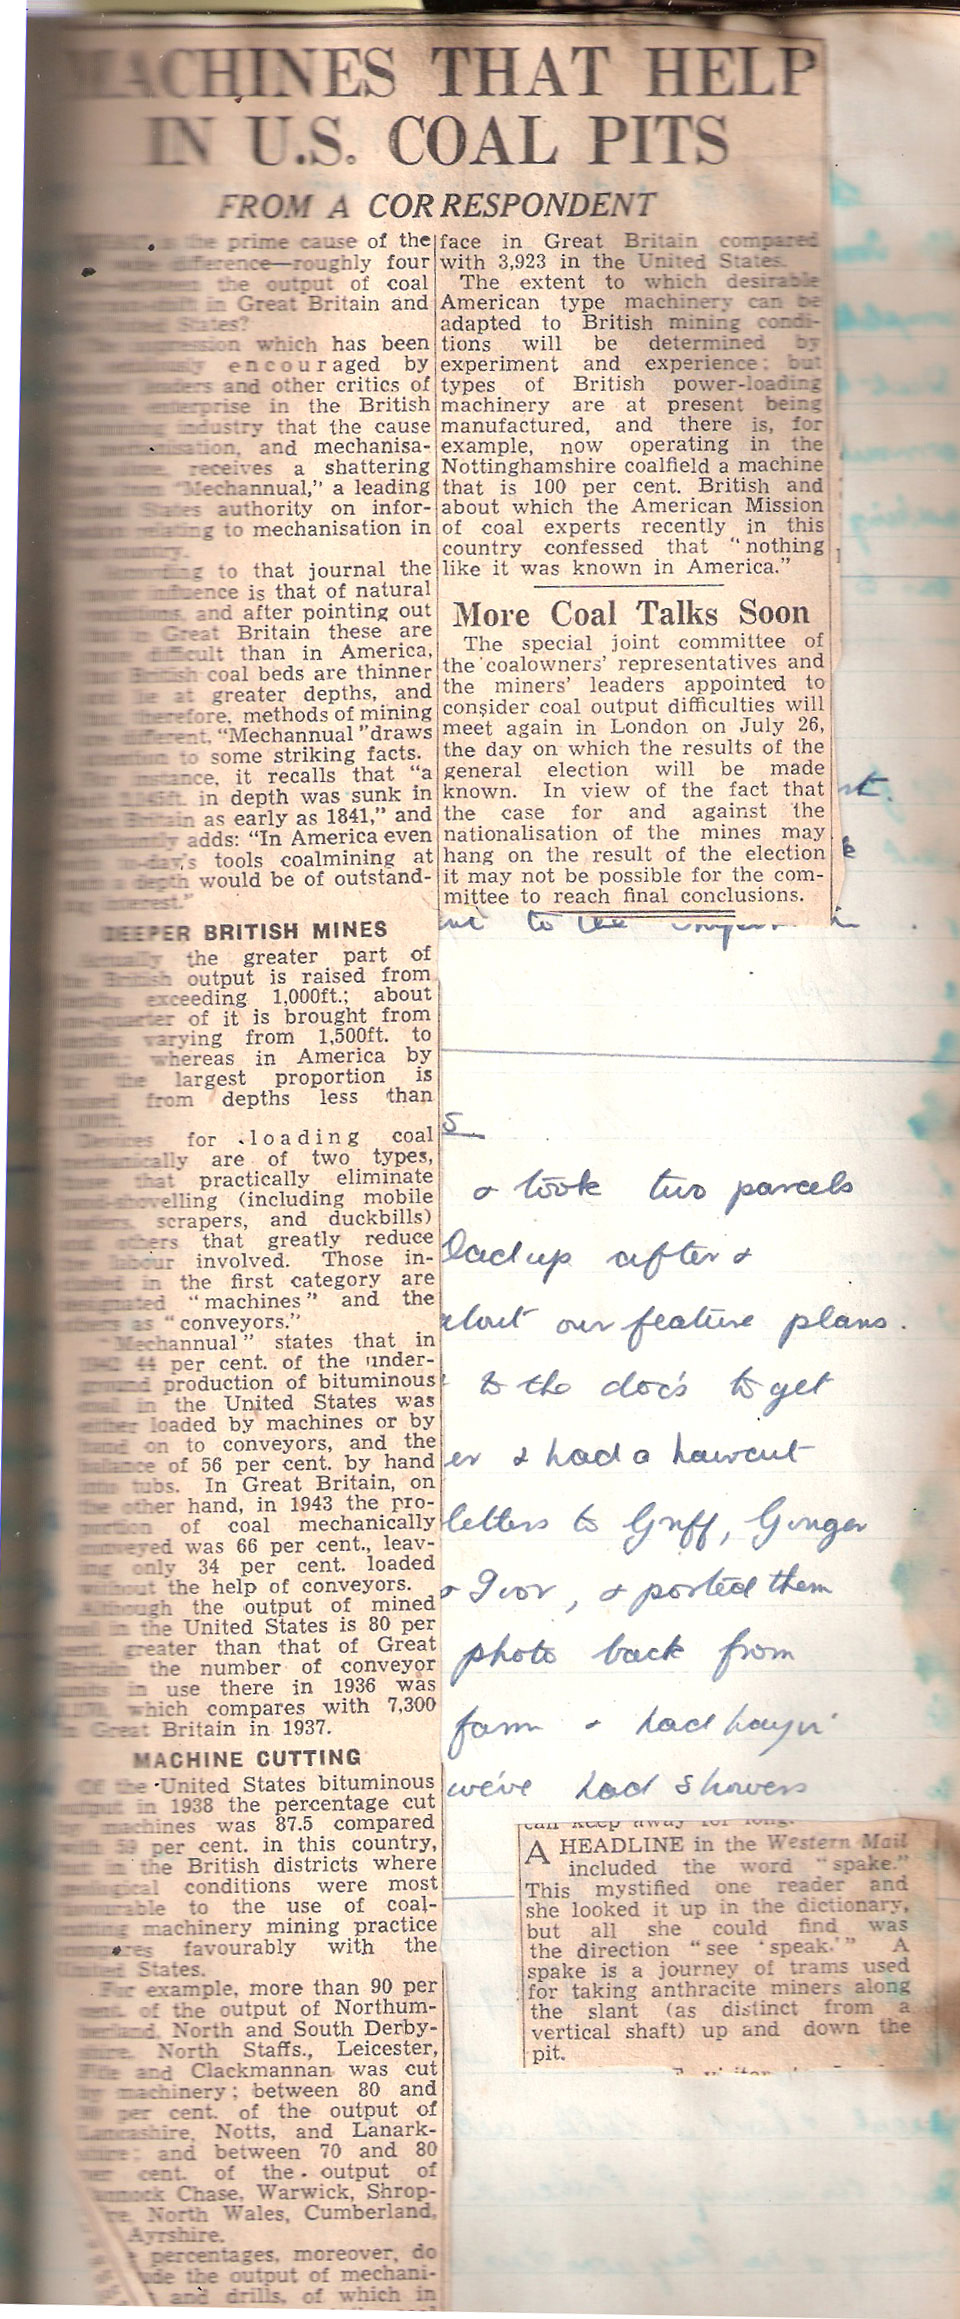 MACHINES THAT HELP
IN U.S. COAL PITS
FROM A CORRESPONDENT
the prime cause of the
difference—roughly four
the output of coal
in Great Britain and
States?
which has been
encouraged by
and other critics of
enterprise in the British
industry that the cause
and mechanisa-
receives a shattering
"Mechannual," a leading
States authority on infor-
relating to mechanisation in
country.
According to that journal the
influence is that of natural
and after pointing out
in Great Britain these are
difficult than in America,
British coal beds are thinner
at greater depths, and
therefore, methods of mining
different, "Mechannual" draws
to some striking facts.
For instance, it recalls that "a
in depth was sunk in
Britain as early as 1841," and
adds: "In America even
to-day's tools coalmining at
depth would be of outstand-
ing interest."
DEEPER BRITISH MINES
Actually the greater part of
the British output is raised from
exceeding 1,000ft.; about
one-quarter of it is brought from
varying from 1,500ft. to
whereas in America by
the largest proportion is
from depths less than
Devices for loading coal
mechanically are of two types,
those that practically eliminate
hand-shovelling (including mobile
scrapers, and duckbills)
and others that greatly reduce
the labour involved. Those in-
cluded in the first category are
designated "machines" and the
others as "conveyors."
"Mechannual" states that in
1942 44 per cent. of the under-
ground production of bituminous
coal in the United States was
either loaded by machines or by
hand on to conveyors, and the
balance of 56 per cent. by hand
into tubs. In Great Britain, on
the other hand, in 1943 the pro-
portion of coal mechanically
conveyed was 66 per cent., leav-
ing only 34 per cent. loaded
without the help of conveyors.
Although the output of mined
coal in the United States is 80 per
cent. greater than that of Great
Britain the number of conveyor
units in use there in 1936 was
which compares with 7,300
in Great Britain in 1937.
MACHINE CUTTING
Of the United States bituminous
output in 1938 the percentage cut
by machines was 87.5 compared
with 59 per cent. in this country,
but in the British districts where
geological conditions were most
favourable to the use of coal-
cutting machinery mining practice
compares favourably with the
United States.
For example, more than 90 per
cent. of the output of Northum-
berland, North and South Derby-
shire, North Staffs., Leicester,
Fife and Clackmannan was cut
by machinery; between 80 and
90 per cent. of the output of
Lancashire, Notts, and Lanark-
shire; and between 70 and 80
per cent. of the output of
Cannock Chase, Warwick, Shrop-
North Wales, Cumberland,
Ayrshire.
percentages, moreover, do
the output of mechani-
and drills, of which in
face in Great Britain compared
with 3,923 in the United States.
The extent to which desirable
American type machinery can be
adapted to British mining condi-
tions will be determined by
experiment and experience; but
types of British power-loading
machinery are at present being
manufactured, and there is, for
example, now operating in the
Nottinghamshire coalfield a machine
that is 100 per cent. British and
about which the American Mission
of coal experts recently in this
country confessed that "nothing
like it was known in America."
More Coal Talks Soon
The special joint committee of
the coalowners' representatives and
the miners' leaders appointed to
consider coal output difficulties will
meet again in London on July 26,
the day on which the results of the
general election will be made
known. In view of the fact that
the case for and against the
nationalisation of the mines may
hang on the result of the election
it may not be possible for the com-
mittee to reach final conclusions.
to the
& took two parcels
up after &
about our feature plans.
to the doc's to get
& had a haircut
letters to Griff, Ginger
& Ivor, & posted them
photo back from
farm & had hayin'
we've had showers
can keep away for long.
A HEADLINE in the Western Mail
included the word "spake."
This mystified one reader and
she looked it up in the dictionary,
but all she could find was
the direction "see 'speak.'" A
spake is a journey of trams used
for taking anthracite miners along
the slant (as distinct from a
vertical shaft) up and down the
pit.